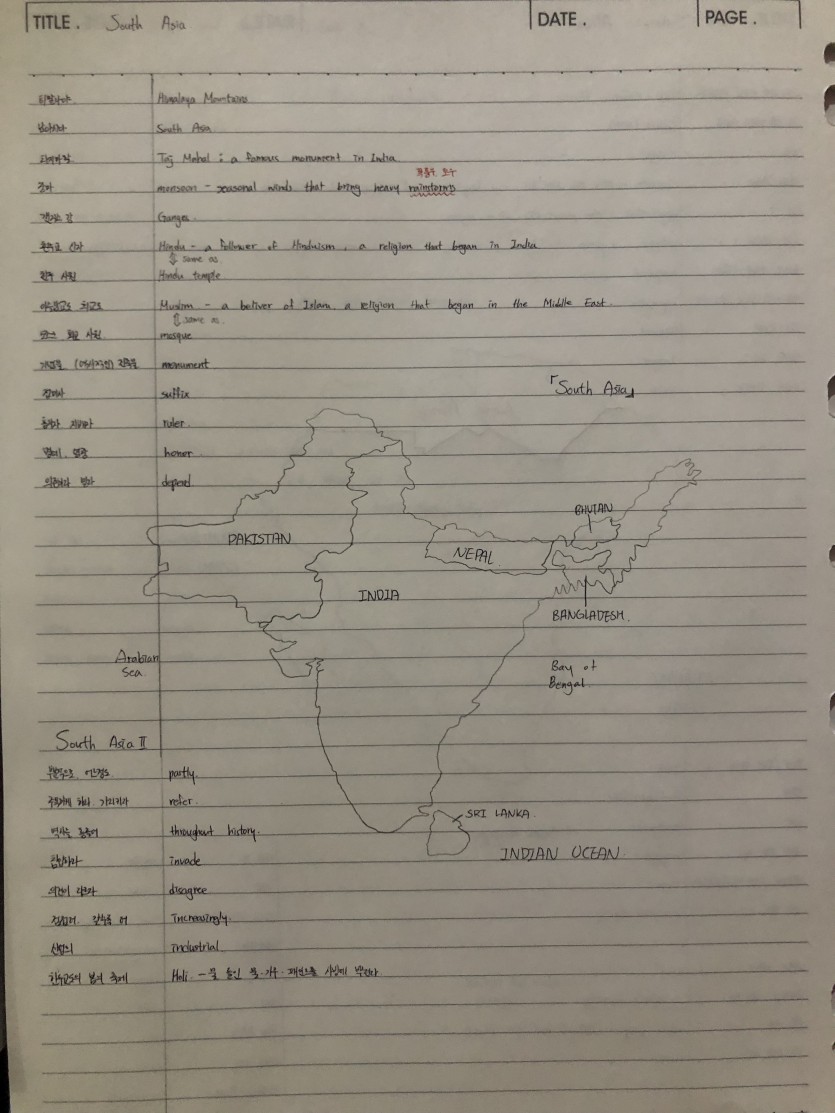 TITLE. South Asia
DATE.
PAGE.
히말라야 Himalaya Mountains
남아시아 South Asia
타지마할 Taj Mahal : a famous monument in India
폭풍우, 호우
monsoon - seasonal winds that bring heavy rainstorms
갠지스 강 Ganges
힌두교 신자 Hindu - a follower of Hinduism, a religion that began in India
⇕ same as
힌두 사원 Hindu temple
이슬람교도 회교도 Muslim - a beliver of Islam, a religion that began in the Middle East
⇕ same as
회교 사원 mosque
기념물 (역사적인) 건축물 monument
접미사 suffix
「South Asia」
통치자 지배자 ruler
명예, 영광 honor
의존하다 depend
BHUTAN
PAKISTAN
NEPAL
INDIA
BANGLADESH
Arabian
Sea
Bay of
Bengal
South Asia II
부분적으로, 어느정도 partly
가리키다 refer
SRI LANKA
역사를 통틀어 throughout history
INDIAN OCEAN
침입하다 invade
의견이 다르다 disagree
점점더, 갈수록 더 Increasingly
산업의 industrial
힌두교도의 봄의 축제 Holi - 물 들인 물·가루·페인트를 사람에 뿌린다